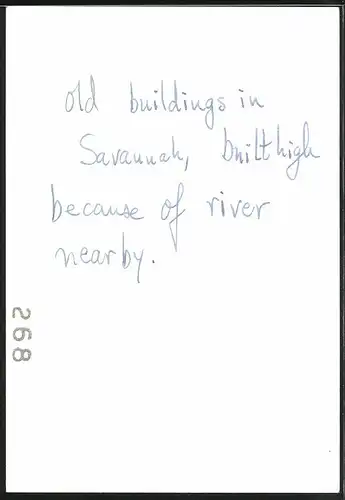 old buildings in
Savannah, built high
because of river
nearby.
268